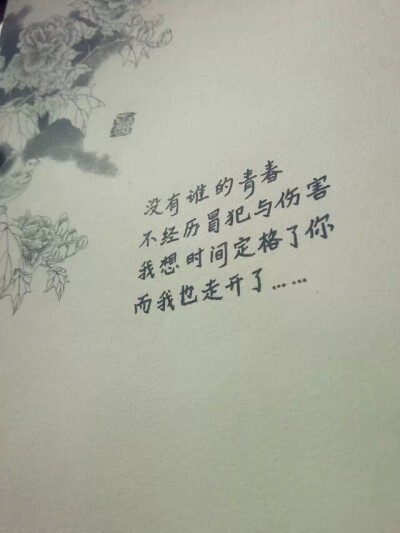 没有谁的青春
不经历冒犯与伤害
我想时间定格了你
而我也走开了……